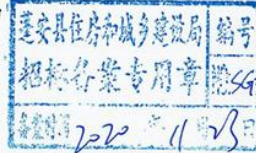 蓬安县住房和城乡建设局 编号
招标备案专用章 SG
备案时间 2020 年 11 月 23 日